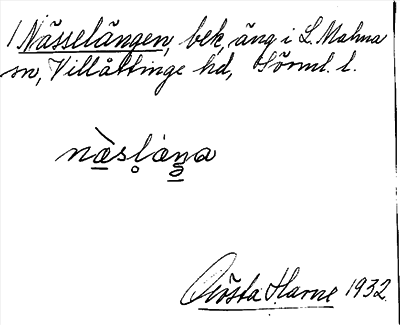 1 Nässelängen, bek, äng i L. Malma
sn, Villåttinge hd, Sörml. l.
næ̀sl̥áŋa
Gösta Harne 1932.